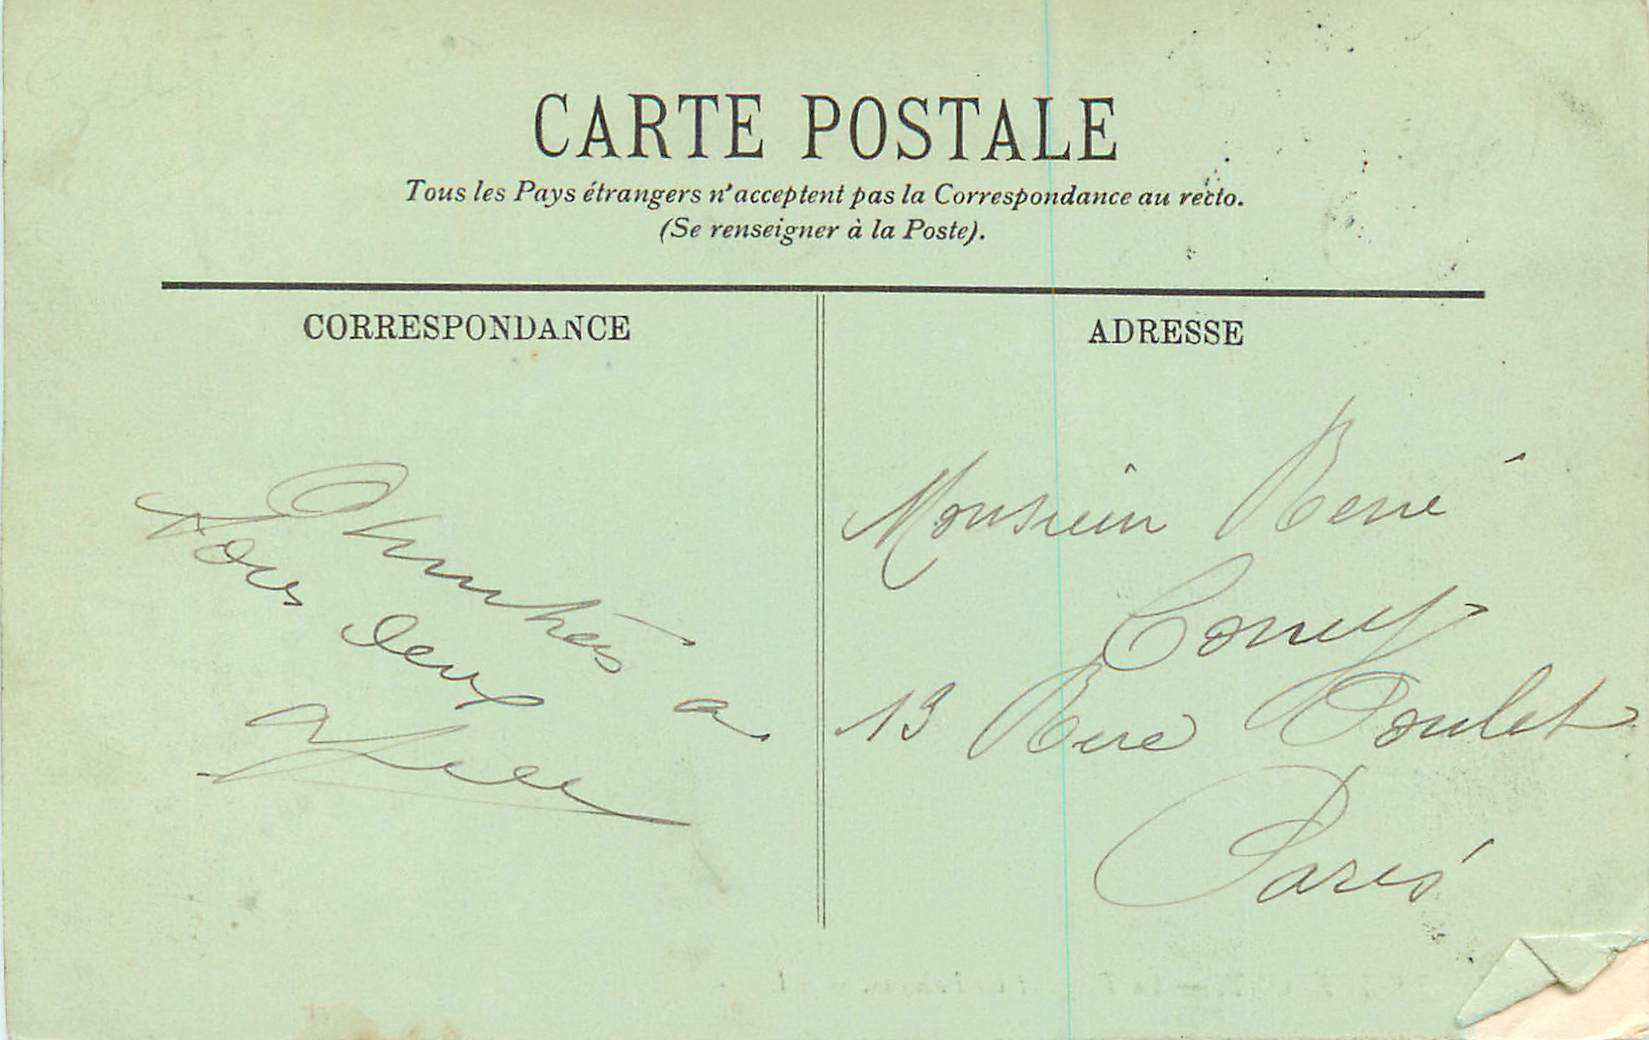 CARTE POSTALE
Tous les Pays étrangers n'acceptent pas la Correspondance au recto.
(Se renseigner à la Poste).
CORRESPONDANCE
Amitiés à
tous deux
ADRESSE
Monsieur René
13 Rue Poulet
Paris